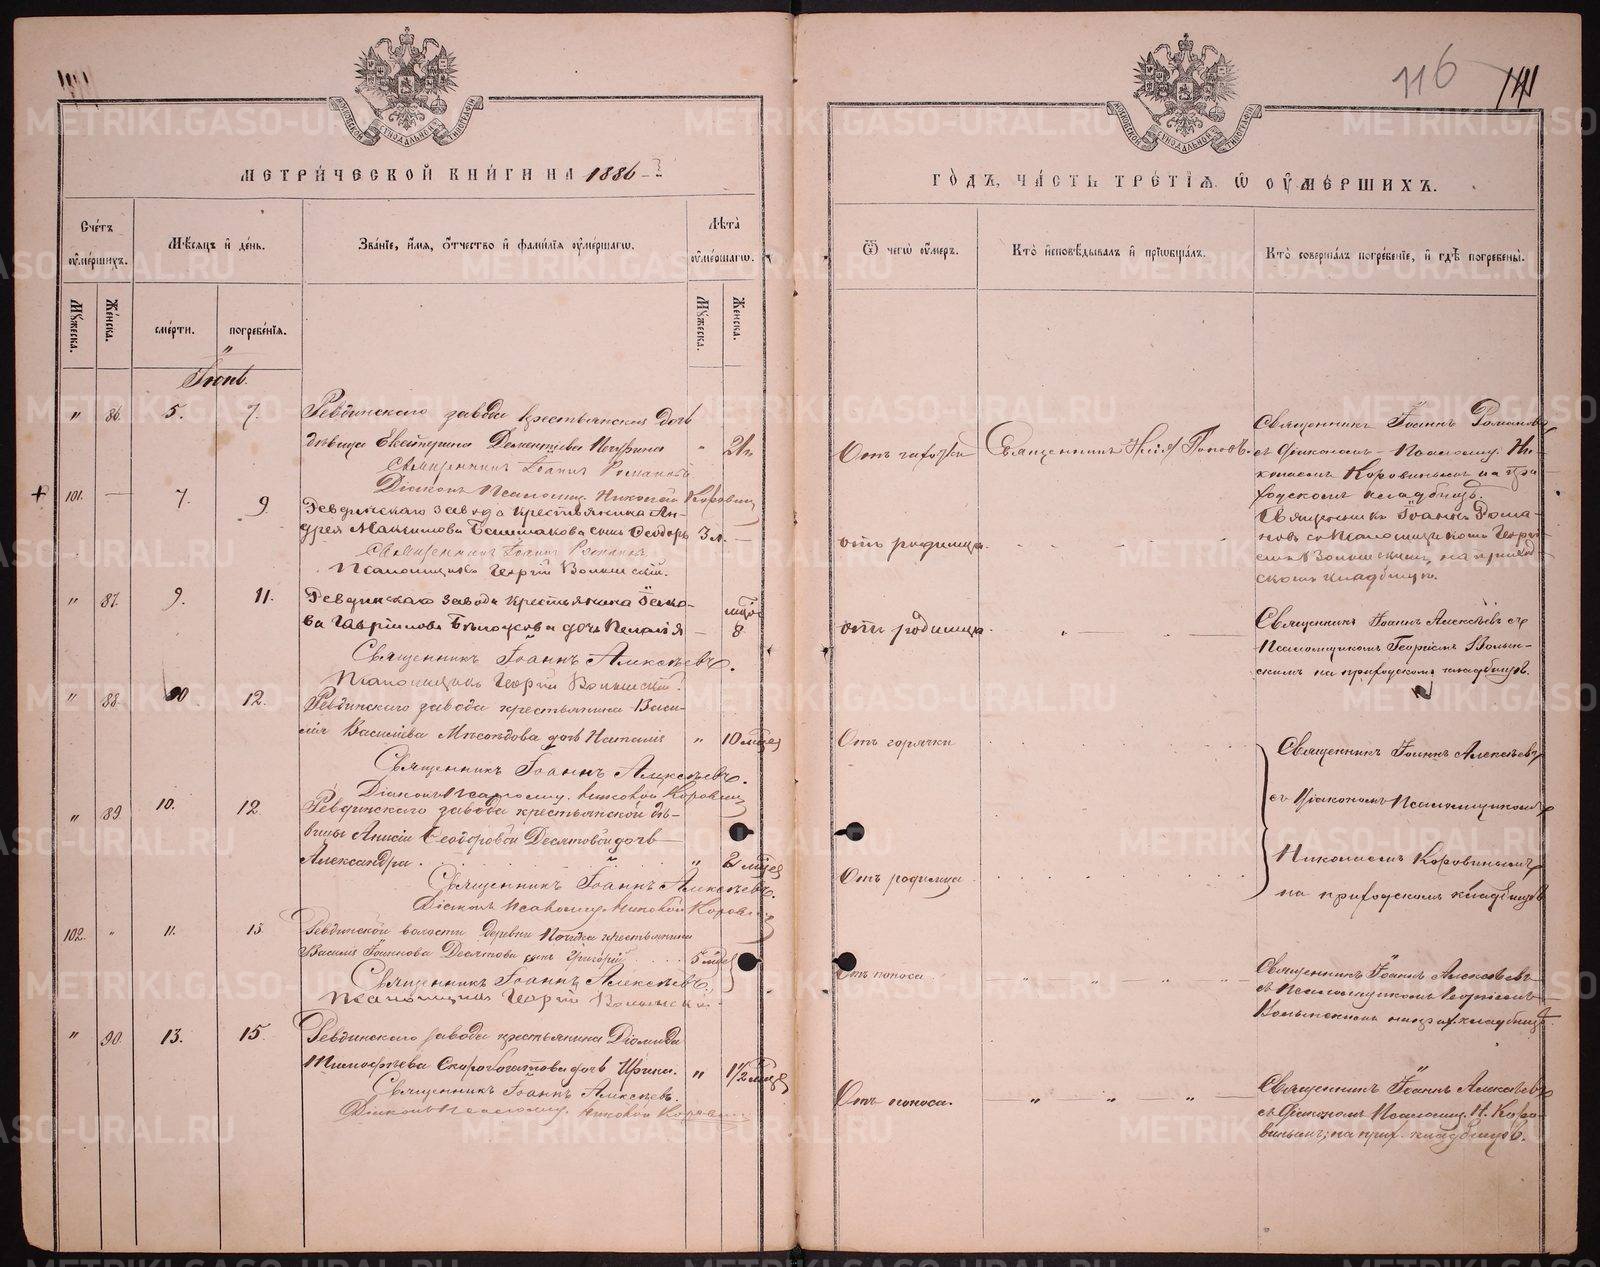 116
МЕТРИ́ЧЕСКОЙ КНИ́ГИ НА 1886
ГО́ДЪ, ЧА́СТЬ ТРЕ́ТІѦ Ѡ ОУМЕ́РШИХЪ.
Сче́тъ оумершихъ.
Мѣсяцъ и де́нь.
Зва́ніе, и́мя, о́тчество и фами́лія оуме́ршагѡ.
Лѣта̀ оуме́ршагѡ.
Ѿ чегѡ̀ оу́меръ.
Кто̀ исповѣ́дывалъ и пріѡбща́лъ.
Кто̀ соверша́лъ погребе́ніе, и гдѣ̀ погребены̀.
Мꙋ́жеска.
Же́нска.
сме́рти.
погребе́нія.
Мꙋ́жеска.
Же́нска.
Іюнь.
" 86. 5. 7. Ревдинскаго завода крестьянская дочь
дѣвица Екатерина Дементіева " 21
Священникъ Іоаннъ Романовъ
Діаконъ Псаломщ. Николай Коровин
От чахотки Священникъ Попов
Священникъ Іоаннъ Романовъ
съ Діакономъ - Псаломщ. Ни-
колаемъ Коровинымъ на при
ходскомъ кладбищѣ.
101. — 7. 9. Ревдинскаго завода крестьянина Ан-
дрея Максимова Башмакова сынъ Ѳеодоръ 3 л. —
Священникъ Іоаннъ Романовъ
Псаломщикъ Георгій Волынскій.
отъ родимца.
Священникъ Іоаннъ Рома-
новъ съ Псаломщикомъ Геор-
гіемъ Волынскимъ, на приход
скомъ кладбищѣ.
" 87. 9. 11. Ревдинскаго завода крестьянина Іако-
ва Гаврилова дочь Пелагія — мцов 8
Священникъ Іоаннъ Алексѣевъ.
Псаломщикъ Георгій Волынскій.
отъ родимца.
Священникъ Іоаннъ Алексѣевъ съ
Псаломщикомъ Георгіемъ Волын-
скимъ на приходскомъ кладбищѣ.
" 88. 10 12. Ревдинскаго завода крестьянина Васи-
лія Василіева Мѣсоѣдова дочь Наталія " 10 мцев
Священникъ Іоаннъ Алексѣевъ.
Діаконъ Псаломщ. Николай Коровин
Отъ горячки
Священникъ Іоаннъ Алексѣевъ
съ Діакономъ Псаломщикомъ
Николаемъ Коровинымъ
на приходскомъ кладбищѣ
" 89. 10. 12 Ревдинскаго завода крестьянской дѣ-
вицы Анисіи Ѳеодоровой Десятовой дочь
Александра " 2 мцев
Священникъ Іоаннъ Алексѣевъ.
Діаконъ Псаломщ. Николай Коровин
Отъ родимца
102. " 11. 13. Ревдинской волости деревни крестьянина
Василія Іоаннова Десятова сынъ Григорій 5 мцев
Священникъ Іоаннъ Алексѣевъ.
Псаломщикъ Георгій Волынскій.
Отъ поноса
Священникъ Іоаннъ Алексѣевъ
съ Псаломщикомъ Георгіемъ
Волынскимъ на прих. кладбищѣ.
" 90. 13. 15. Ревдинскаго завода крестьянина Діомида
Тимоѳѣева Скоробогатова дочь Ирина. " 1½ мцев
Священникъ Іоаннъ Алексѣевъ.
Діаконъ Псаломщ. Николай Коровин
Отъ поноса.
Священникъ Іоаннъ Алексѣевъ
съ Діакономъ Псаломщ. Н. Коро-
винымъ; на прих. кладбищѣ.
METRIKI.GASO-URAL.RU